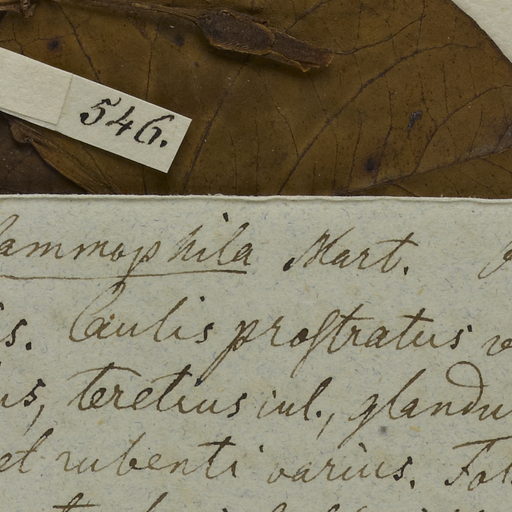 546.
ammophila Mart.
is. Caulis prostratus
us, teretiusiul., glandu
et rubenti varius. Fol